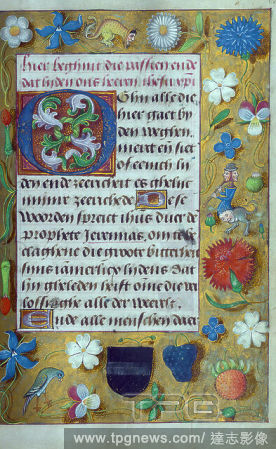 hier beghint die passien ende
dat lijden ons heeren ihesu xpi
O ghi alle die
hier gaet by
den weghen
merct en siet
oft eenich lij
den ende zeericheit es ghelijc
mijnre zeerichede Dese
woorden spreict ihus duer de
prophete Jeremias, om te be
claghene die groote bitterheit
sijns iamerlicx lijdens dat
hij gheleden heeft om die ver
lossinghe alle der weerelt.
Ende alle menschen daer
TPG
www.tpgnews.com/達志影像